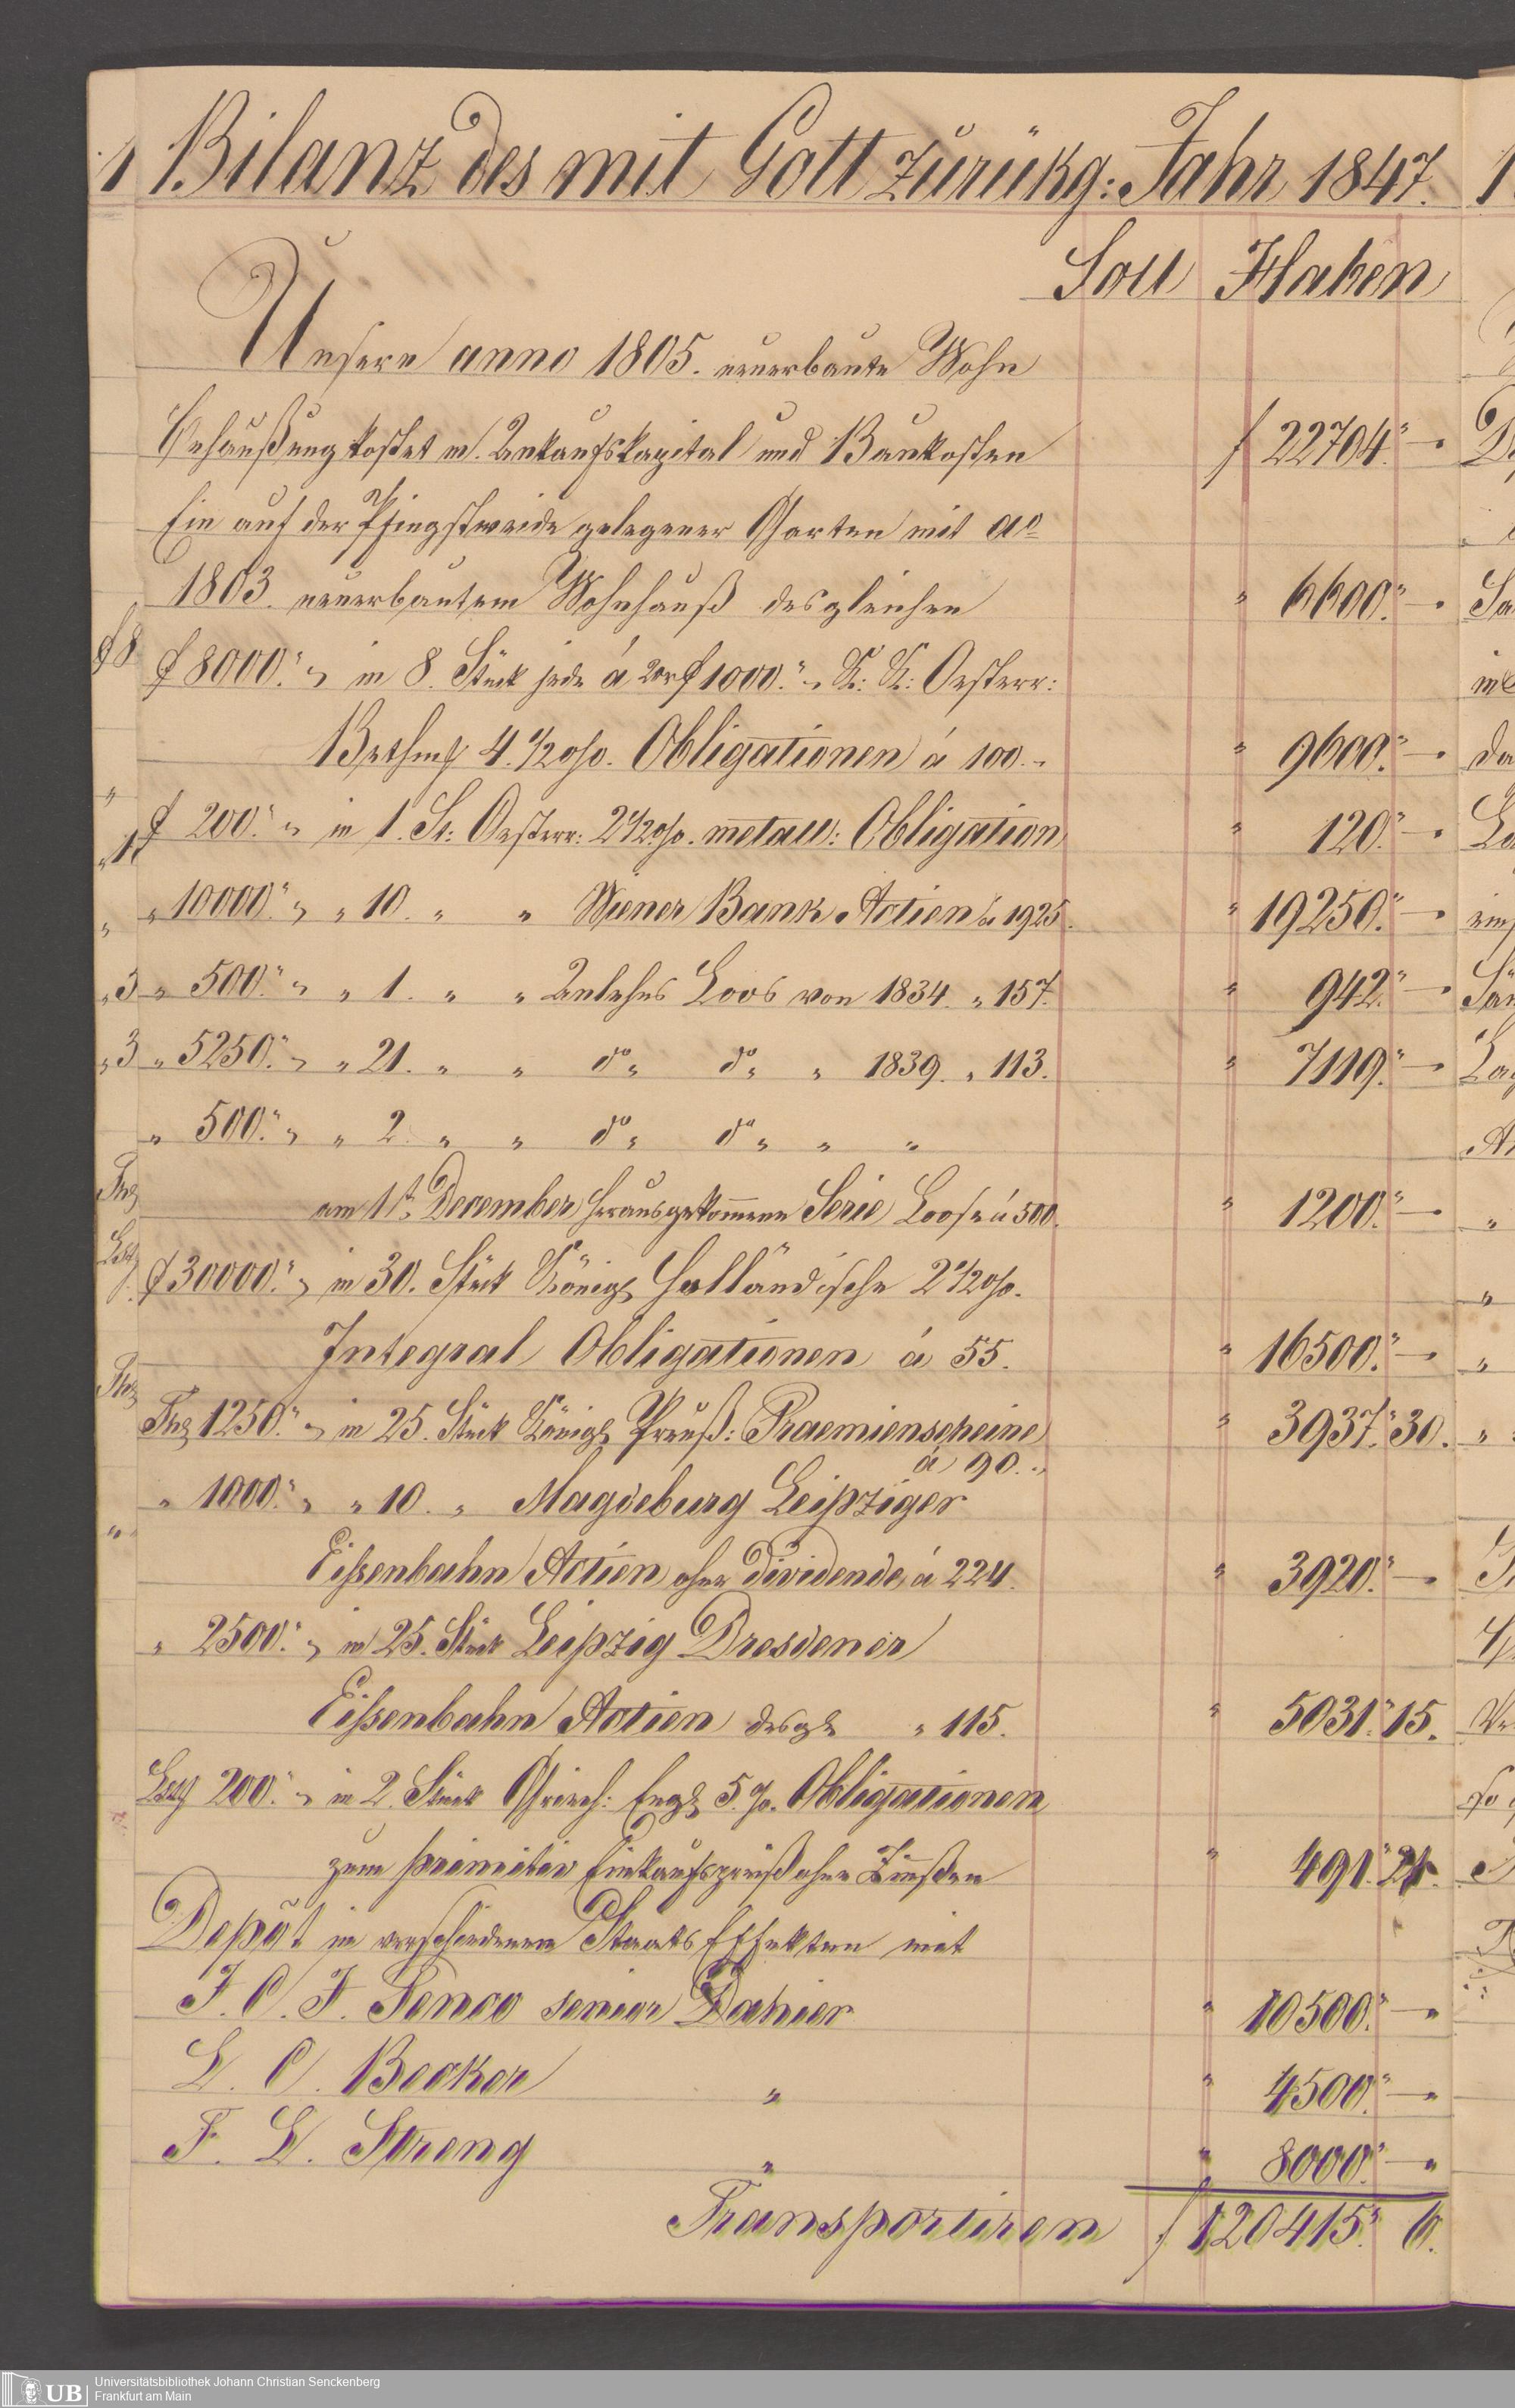 Bilanz des mit Gott zurükg: Jahr 1847.
Soll Haben
Unsere anno 1805. neuerbaute Wohn
Behaußung kostet m. Ankaufskapital und Baukosten f 22704.„ —
Ein auf der Pfingstweide gelegener Garten mit ao
1803. neuerbautem Wohnhauß desgleichen „ 6600.„ —
f 8000.„ „ in 8. Stück jede á 20r f 1000.„ „ K: K: Oesterr:
Bethm 4.1/2 o/o. Obligationen á 100.„ „ 9600.„ —
f 200.„ „ in 1. St: Oesterr: 2 1/2 o/o. metall: Obligation „ 120.„ —
„ 10000.„ „ „ 10. „ „ Wiener Bank Actien á 1925. „ 19250.„ —
„ 500.„ „ „ 1. „ „ Anlehns Loos von 1834. „ 157. „ 942.„ —
„ 5250.„ „ „ 21. „ „ do „ do „ „ 1839. „ 113. „ 7119.„ —
„ 500.„ „ „ 2. „ „ do „ do „ „ „
am 1t. December herausgekommene Serie Loose á 500. „ 1200.„ —
f 30000.„ „ in 30. Stück Königl Holländische 2 1/2 o/o.
Integral Obligationen á 55. „ 16500.„ —
Thz 1250.„ „ in 25. Stück Königl Preuß: Praemienscheine „ 3937.„ 30.
á 90.„
„ 1000.„ „ „ 10. „ Magdeburg Leipziger
Eißenbahn Actien ohne Dividende á 224. „ 3920.„ —
„ 2500.„ „ in 25. Stück Leipzig Dresdener
Eißenbahn Actien desgl „ 115. „ 5031.„ 15.
200.„ „ in 2. Stück Griech: Engl 5. %. Obligationen
zum primitiv Einkaufspreiß ohne Zinßen „ 491.„ 21.
Depôt in verschiedenen Staats Effekten mit
J. C. F. Fenco senior Dahier „ 10500.„ — „
L. C. Becker „ „ 4500.„ — „
F. L. Streng „ „ 8000.„ — „
Transportiren f 120415.„ 6.
UB
Universitätsbibliothek Johann Christian Senckenberg
Frankfurt am Main